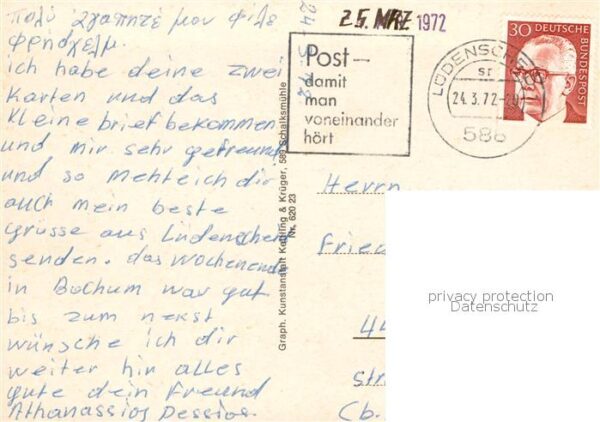 πολύ ἀγαπητέ μου φίλε
φρήδχελμ.
ich habe deine zwei
Karten und das
kleine brief bekommen
und mir sehr gefreund
und so mehteich dir
auch mein beste
grüsse aus Lüdenschen
senden. das wochenende
in Bochum war gut
bis zum nekst
wünsche ich dir
weiter hin alles
gute dein Freund
Athanassios Dessios.
Graph. Kunstanstalt Keßling & Krüger, 589 Schalksmühle
Nr. 620 23
25. MRZ 1972
Post –
damit
man
voneinander
hört
LÜDENSCHEID
sr
24.3.72-20
586
30 DEUTSCHE
BUNDESPOST
Herrn
Frie
44
str
Cb.
privacy protection
Datenschutz